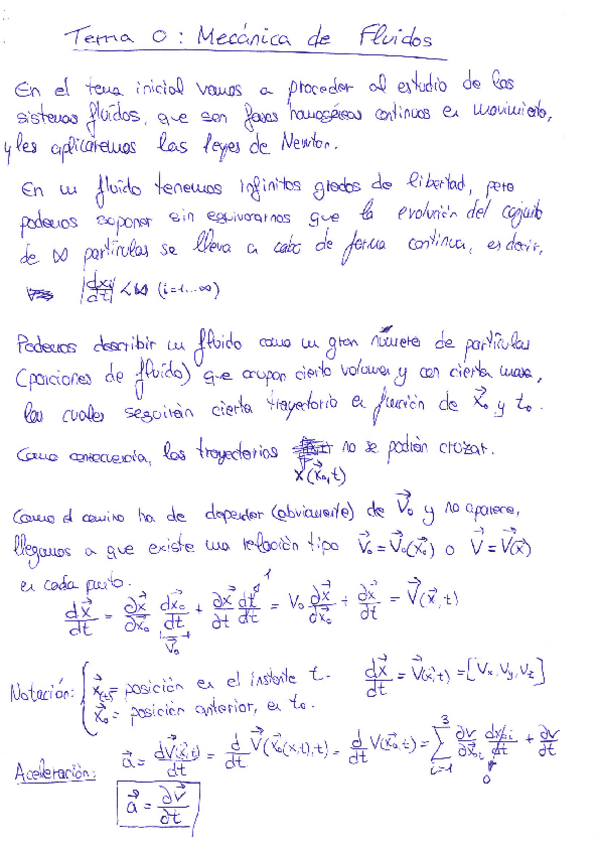 Tema 0: Mecánica de Fluidos
En el tema inicial vamos a proceder al estudio de los
sistemas fluídos, que son fases homogéneas continuas en movimiento,
y les aplicaremos las leyes de Newton.
En un fluído tenemos infinitos grados de libertad, pero
podemos suponer sin equivocarnos que la evolución del conjunto
de ∞ partículas se lleva a cabo de forma continua, es decir,
|dxᵢ/dt| < ∞ (i=1...∞)
Podemos describir un fluído como un gran número de partículas
(porciones de fluído) que ocupan cierto volumen y con cierta masa,
las cuales seguirán cierta trayectoria en función de x⃗₀ y t₀.
Como consecuencia, las trayectorias no se podrán cruzar.
x(x⃗₀,t)
Como el camino ha de depender (obviamente) de V⃗₀ y no aparece,
llegamos a que existe una relación tipo V⃗₀ = V⃗₀(x⃗₀) o V⃗ = V⃗(x⃗)
en cada punto.
dx⃗/dt = ∂x⃗/∂x₀ dx⃗₀/dt + ∂x⃗/∂t dt/dt = V₀ ∂x⃗/∂x₀ + ∂x⃗/∂t = V⃗(x⃗,t)
1
V⃗₀
Notación: { x⃗(t) = posición en el instante t. dx⃗/dt = V⃗(x⃗,t) = [Vx, Vy, Vz]
x⃗₀ = posición anterior, en t₀.
Aceleración: a⃗ = dV⃗(x⃗,t)/dt = d/dt V⃗(x⃗₀(x,t),t) = d/dt V(x⃗₀,t) = Σ³ᵢ₌₁ ∂v/∂x₀ᵢ dx₀ᵢ/dt + ∂v/∂t
0
a⃗ = ∂v⃗/∂t